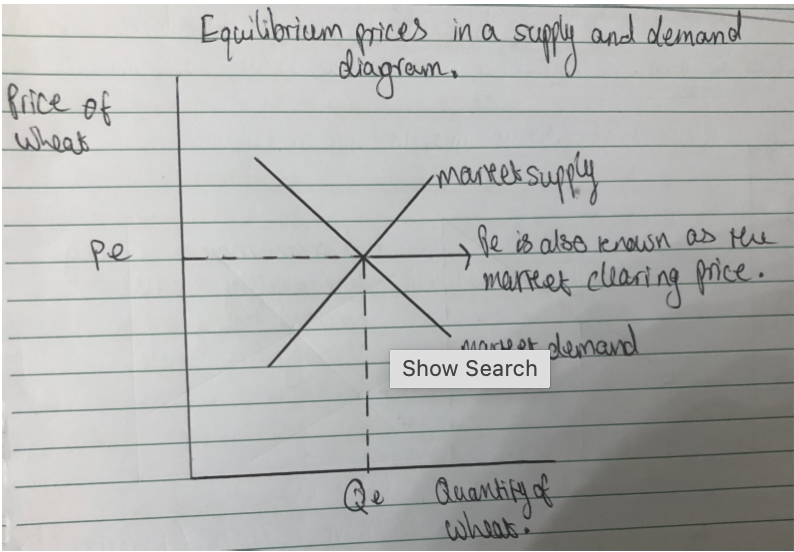 Equilibrium prices in a supply and demand
diagram.
Price of
wheat
market supply
Pe
Pe is also known as the
market clearing price.
market demand
Show Search
Qe
Quantity of
wheat.